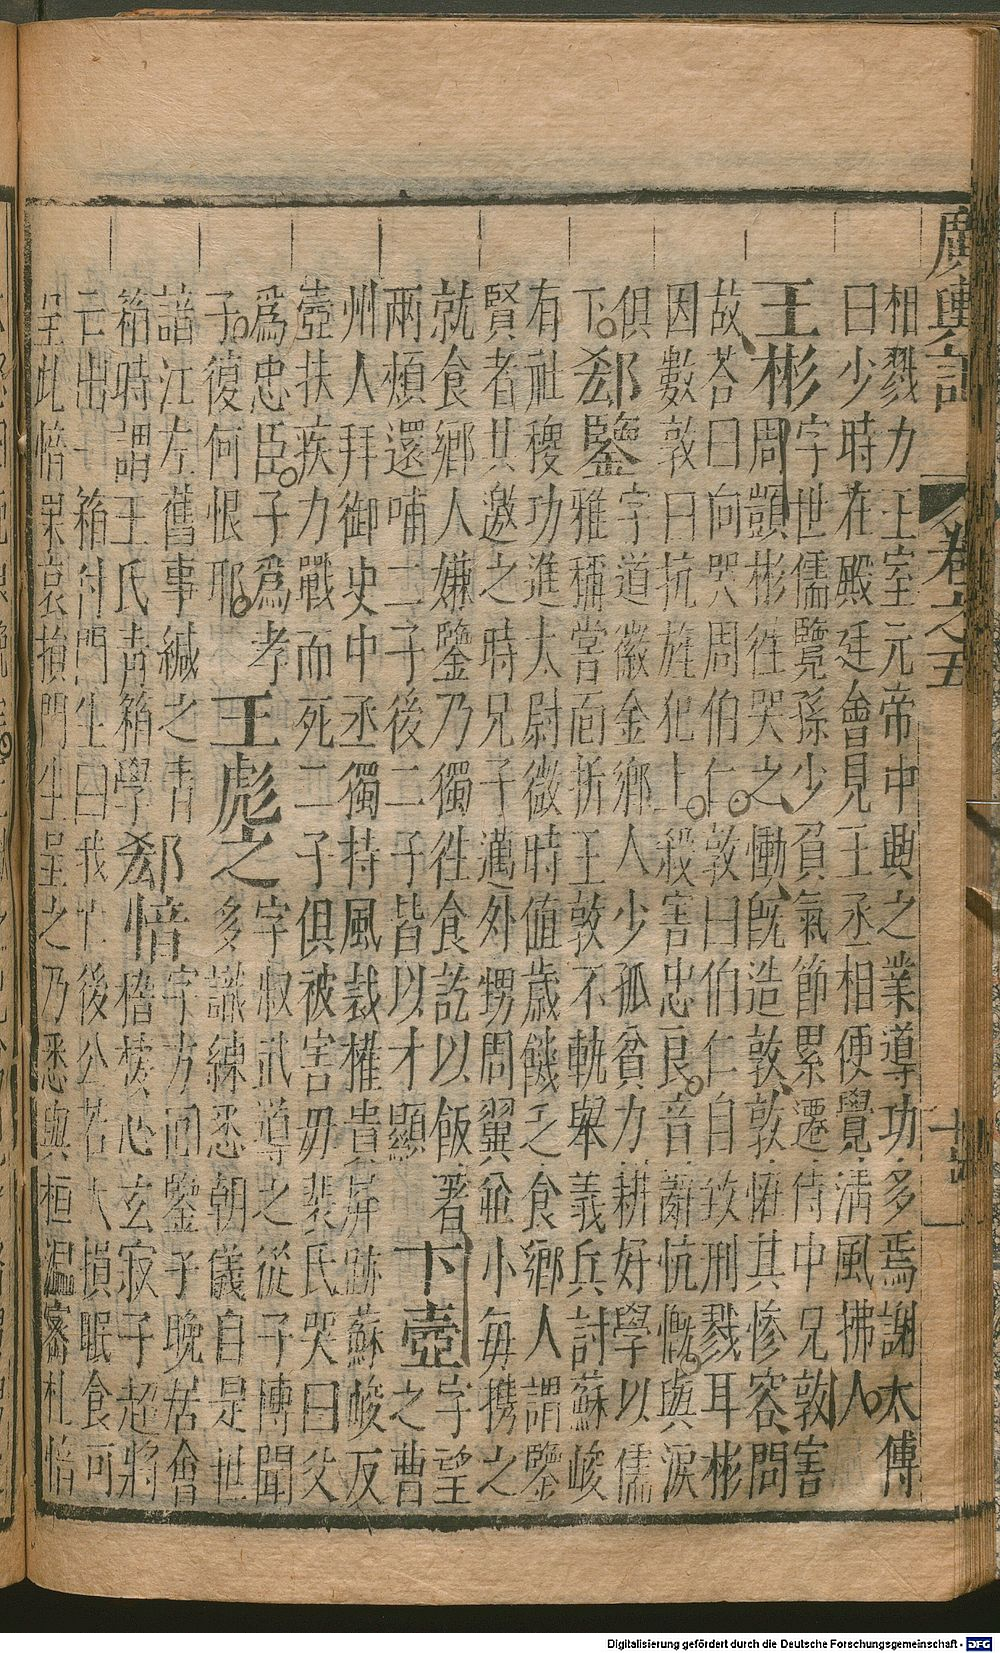 廣輿記
卷之五
相戮力王室元帝中興之業導功多焉謝太傅
曰少時在殿廷會見王丞相便覺清風拂人
王彬
字世儒覽孫少負氣節累遷侍中兄敦害
周顗彬徃哭之慟旣造敦敦恠其慘容問
故荅曰向哭周伯仁敦曰伯仁自致刑戮耳彬
因數敦曰抗旌犯上殺害忠良音辭慷慨與淚
俱
下
郗鑒
字道徽金鄉人少孤貧力耕好學以儒
雅稱嘗面折王敦不軌舉義兵討蘇峻
有社稷功進太尉微時値歲饑乏食鄉人謂鑒
賢者共邀之時兄子邁外甥周翼並小每携之
就食鄉人嫌鑒乃獨徃食訖以飯著
兩頰還哺二子後二子皆以才顯
卞壼
字望
之曹
州人拜御史中丞獨持風裁權貴屏跡蘇峻反
壼扶疾力戰而死二子俱被害毋裴氏哭曰父
爲忠臣子爲孝
子復何恨耶
王彪之
字叔武導之從子博聞
多識練悉朝儀自是世
諳江左舊事緘之青
箱時謂王氏靑箱學
郗愔
字方回鑒子晚居會
稽棲心玄寂子超將
亡出一箱付門生曰我亡後公若大損眠食可
呈此愔果哀損門生呈之乃悉與桓溫密札愔
Digitalisierung gefördert durch die Deutsche Forschungsgemeinschaft - DFG